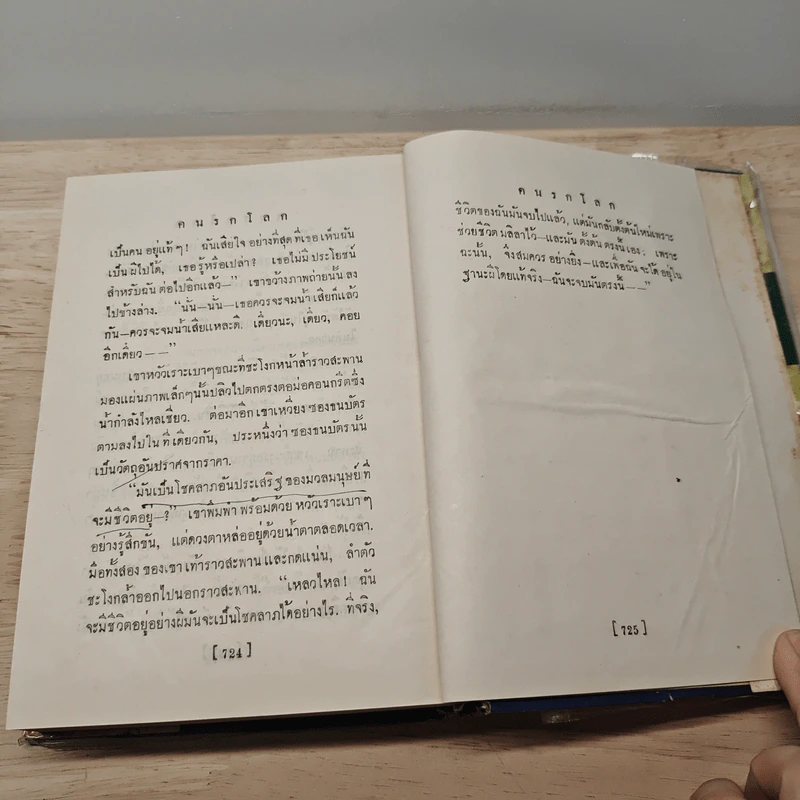 คนรกโลก
เป็นคน อยู่แท้ๆ! ฉันเสียใจ อย่างที่สุด ที่เธอ เห็นฉัน
เป็น ผีไปได้, เธอ รู้หรือเปล่า? เธอไม่มี ประโยชน์
สำหรับฉัน ต่อไปอีกแล้ว—” เขาขว้างภาพถ่ายนั้น ลง
ไปข้างล่าง. “นั่น—นั่น—เธอควรจะจมน้ำ เสียก็แล้ว
กัน—ควรจะจมน้ำเสียแหละดี. เดี๋ยวนะ, เดี๋ยว, คอย
อีกเดี๋ยว ——”
เขาหัวเราะเบาๆขณะที่ชะโงกหน้าล้ำราวสะพาน
มองแผ่นภาพเล็กๆนั้นปลิวไปตกตรงตอม่อคอนกรีตซึ่ง
น้ำกำลังไหลเชี่ยว. ต่อมาอีก เขาเหวี่ยง ซองธนบัตร
ตามลงไป ใน ที่ เดียวกัน, ประหนึ่งว่า ซองธนบัตรนั้น
เป็นวัตถุอันปราศจากราคา.
“มันเป็นโชคลาภอันประเสริฐ ของมวลมนุษย์ ที่
จะมี ชีวิตอยู่—?” เขาพึมพำ พร้อมด้วย หัวเราะเบา ๆ
อย่างรู้สึกขัน, แต่ดวงตาหล่ออยู่ด้วยน้ำตาตลอดเวลา.
มือทั้งสอง ของเขา เท้าราวสะพาน และกดแน่น, ลำตัว
ชะโงกล้ำออกไปนอกราวสะพาน. “เหลวไหล! ฉัน
จะมีชีวิตอยู่อย่างผีมันจะเป็นโชคลาภได้อย่างไร. ที่จริง,
[ 724 ]
คนรกโลก
ชีวิตของฉันมันจบไปแล้ว, แต่มันกลับตั้งต้นใหม่เพราะ
ช่วยชีวิต มลิลาไว้—และมัน ตั้งต้น ตรงนี้ เอง; เพราะ
ฉะนั้น, จึงสมควร อย่างยิ่ง—และเพื่อฉัน จะได้ อยู่ใน
ฐานะผีโดยแท้จริง—ฉันจะจบมันตรงนี้——”
[ 725 ]